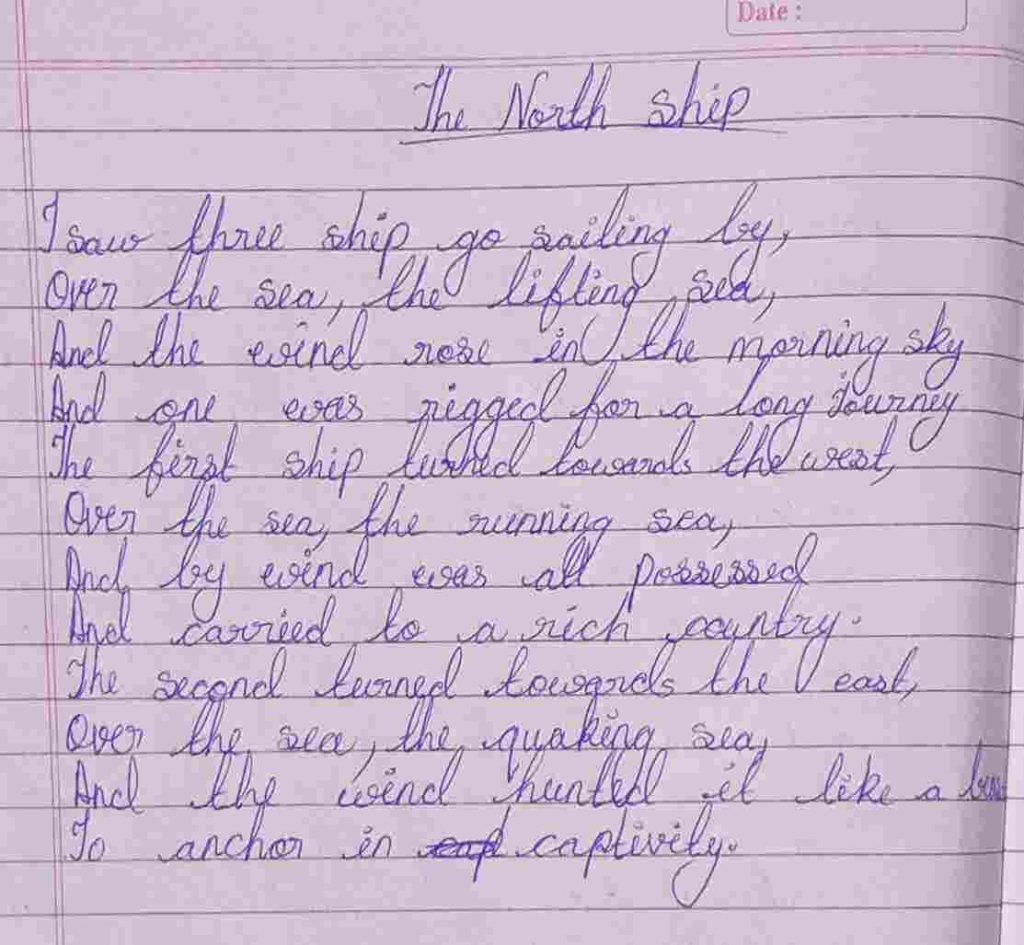 Date :
The North ship
I saw three ship go sailing by,
Over the sea, the lifting sea,
And the wind rose in the morning sky
And one was rigged for a long Journey
The first ship turned towards the west,
Over the sea, the running sea,
And by wind was all possessed
And carried to a rich country.
The second turned towards the east,
Over the sea, the quaking sea,
And the wind hunted it like a
To anchor in captivity.